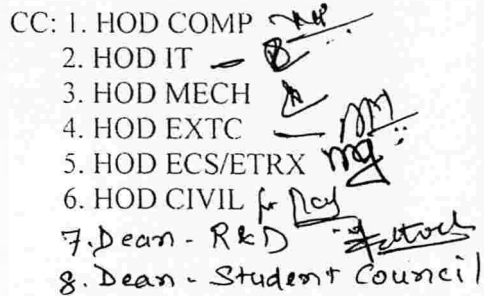 CC: 1. HOD COMP
2. HOD IT
3. HOD MECH
4. HOD EXTC
5. HOD ECS/ETRX
6. HOD CIVIL for
7. Dean - R&D
8. Dean - Student Council